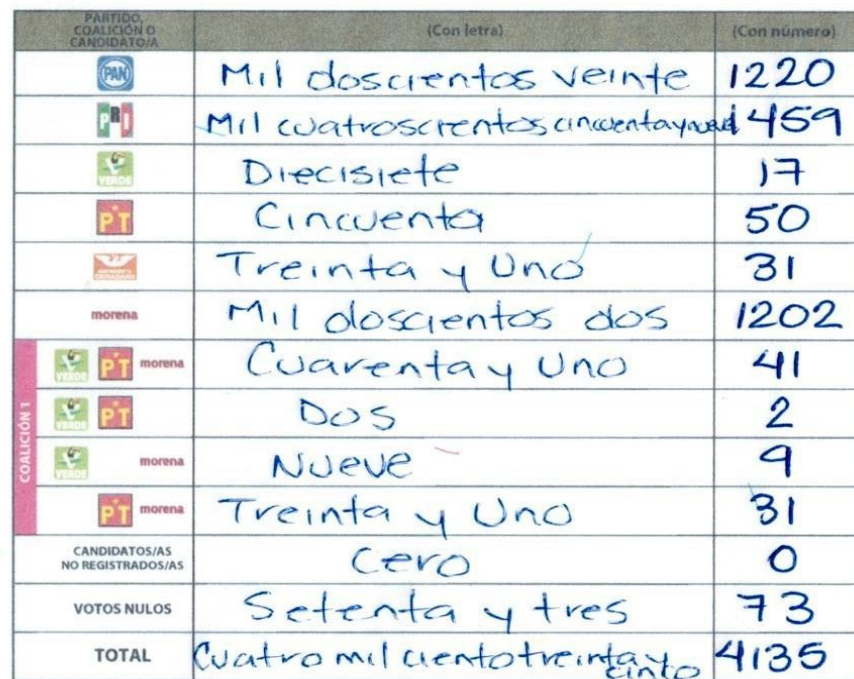 PARTIDO, COALICIÓN O CANDIDATO/A (Con letra) (Con número)
PAN Mil doscientos veinte 1220
PRI Mil cuatroscientos cincuenta y nueve 1459
VERDE Diecisiete 17
PT Cincuenta 50
MOVIMIENTO CIUDADANO Treinta y Uno 31
morena Mil doscientos dos 1202
COALICIÓN 1
VERDE PT morena Cuarenta y Uno 41
VERDE PT Dos 2
VERDE morena Nueve 9
PT morena Treinta y Uno 31
CANDIDATOS/AS NO REGISTRADOS/AS Cero 0
VOTOS NULOS Setenta y tres 73
TOTAL Cuatro mil ciento treinta y cinco 4135